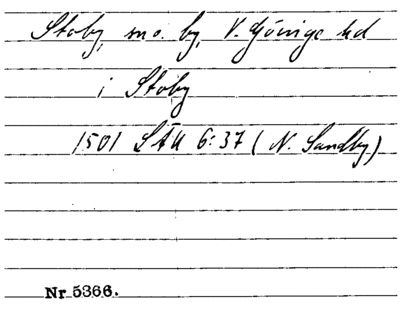 Stoby, sn o. by, V. Göinge hd
i Stoby
1501 STU 6:37 (N. Sandby)
Nr 5366.